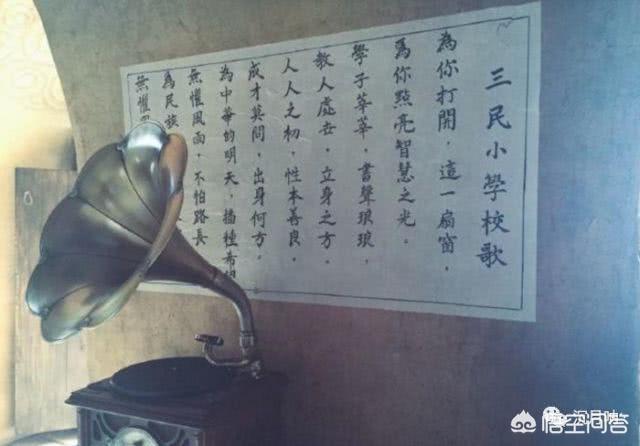 三民小學校歌
為你打開，這一扇窗，
為你點亮智慧之光。
學子莘莘，書聲琅琅，
教人處世，立身之方。
人人之初，性本善良，
成才莫問，出身何方。
為中華的明天，播種希
無懼風雨，不怕路長
為民族
無懼風
悟空问答